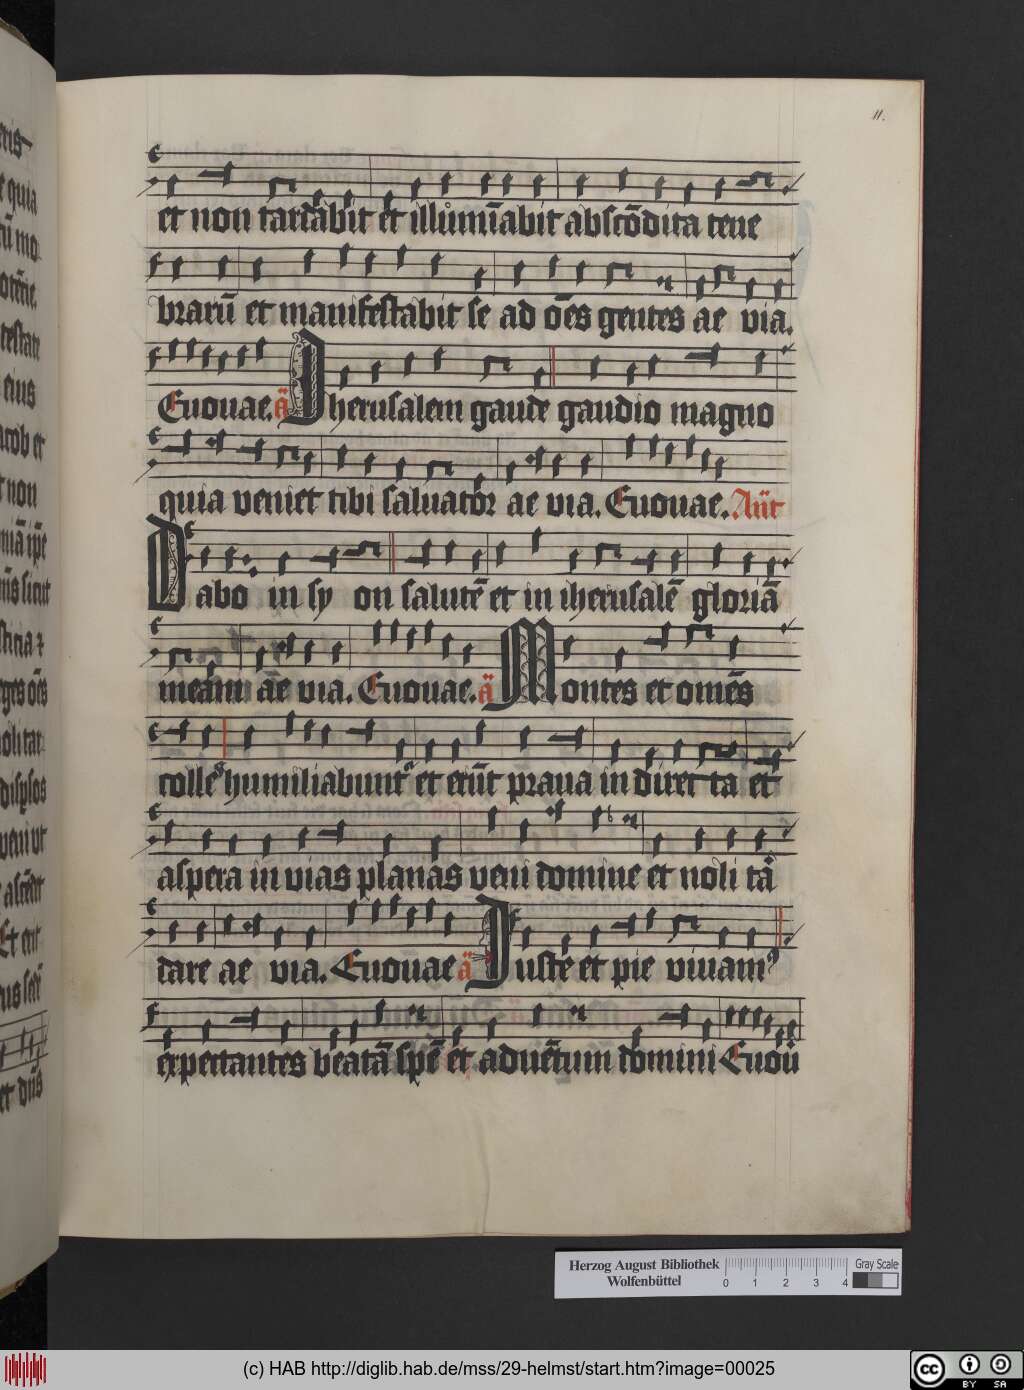 11.
et non tardabit et illumīabit abscōdita tene
brarū et manifestabit se ad oēs gentes ae via.
Euouae. ā Jherusalem gaude gaudio magno
quia veniet tibi saluator ae via. Euouae. Añt
Dabo in sy on salutē et in iherusalē gloriā
meam ae via. Euouae. ā Montes et omēs
colles humiliabunt et erūt praua in direc ta et
aspera in vias planas veni domine et noli tā
dare ae via. Euouae ā Juste et pie viuam
expectantes beatā spē et aduētum domini Euou
eris
e quia
testare
eius
acob et
t non
mā ipē
sicut
sticia
ges oēs
veni ut
Et erit
et dns
Herzog August Bibliothek
Wolfenbüttel
0 1 2 3 4
Gray Scale
(c) HAB http://diglib.hab.de/mss/29-helmst/start.htm?image=00025
cc BY SA